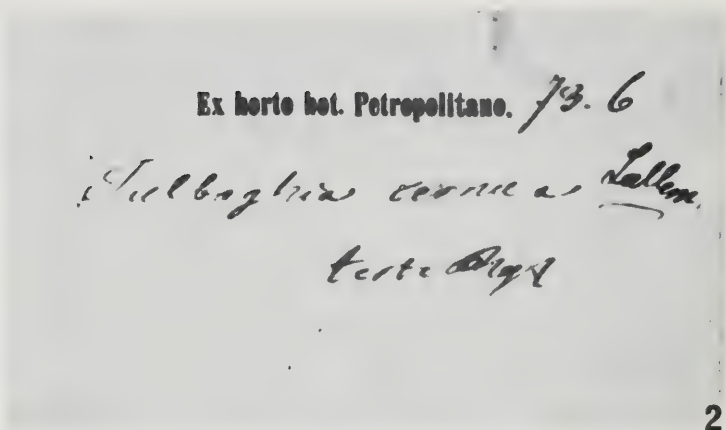 Ex horto bot. Petropolitano. 73.6
Tulbaghia cernua Lallem.
teste
2